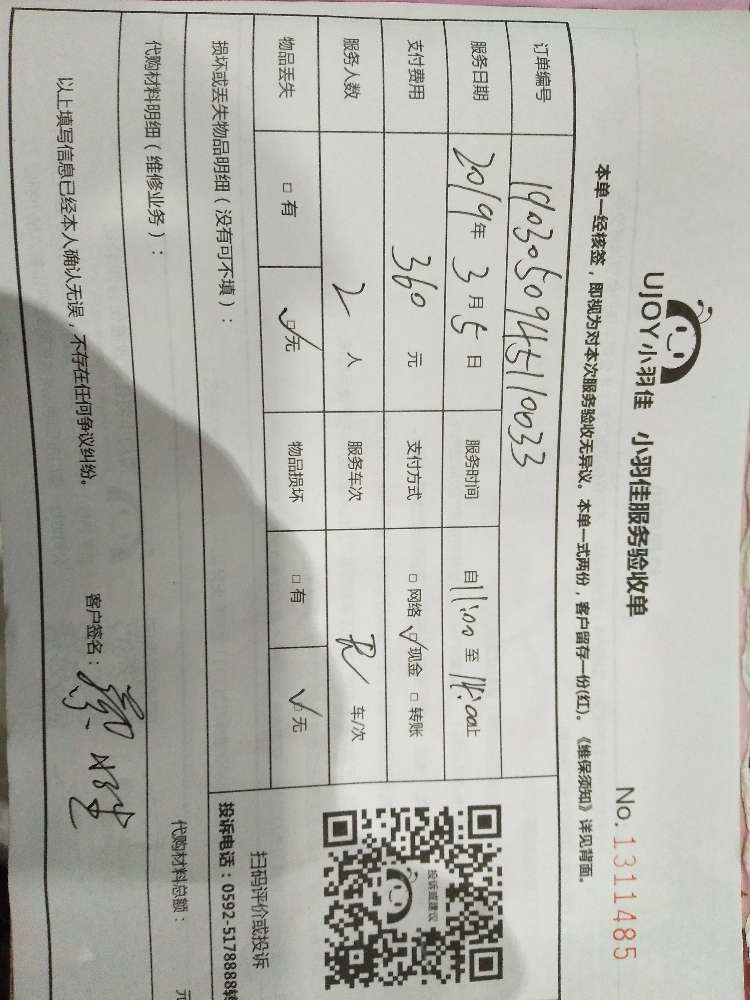 UJOY小羽佳 小羽佳服务验收单
No. 1311485
本单一经核签，即视为对本次服务验收无异议。本单一式两份，客户留存一份(红)。《维保须知》详见背面。
订单编号
服务日期 2019年3月5日 服务时间 自11:00至 止
支付费用 360元 支付方式 □网络 ☑现金 □转账
服务人数 2人 服务车次 车/次
物品丢失 □有 ☑无 物品损坏 □有 ☑无
投诉或建议
扫码评价或投诉
投诉电话：0592-5178888转
损坏或丢失物品明细（没有可不填）：
代购材料明细（维修业务）： 代购材料总额： 元
以上填写信息已经本人确认无误，不存在任何争议纠纷。 客户签名：